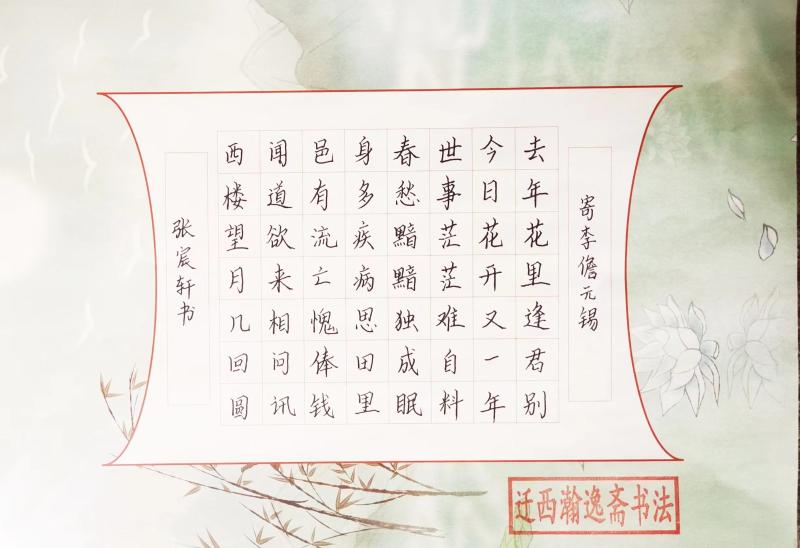 寄李儋元锡
去年花里逢君别
今日花开又一年
世事茫茫难自料
春愁黯黯独成眠
身多疾病思田里
邑有流亡愧俸钱
闻道欲来相问讯
西楼望月几回圆
张宸轩书
迁西瀚逸斋书法